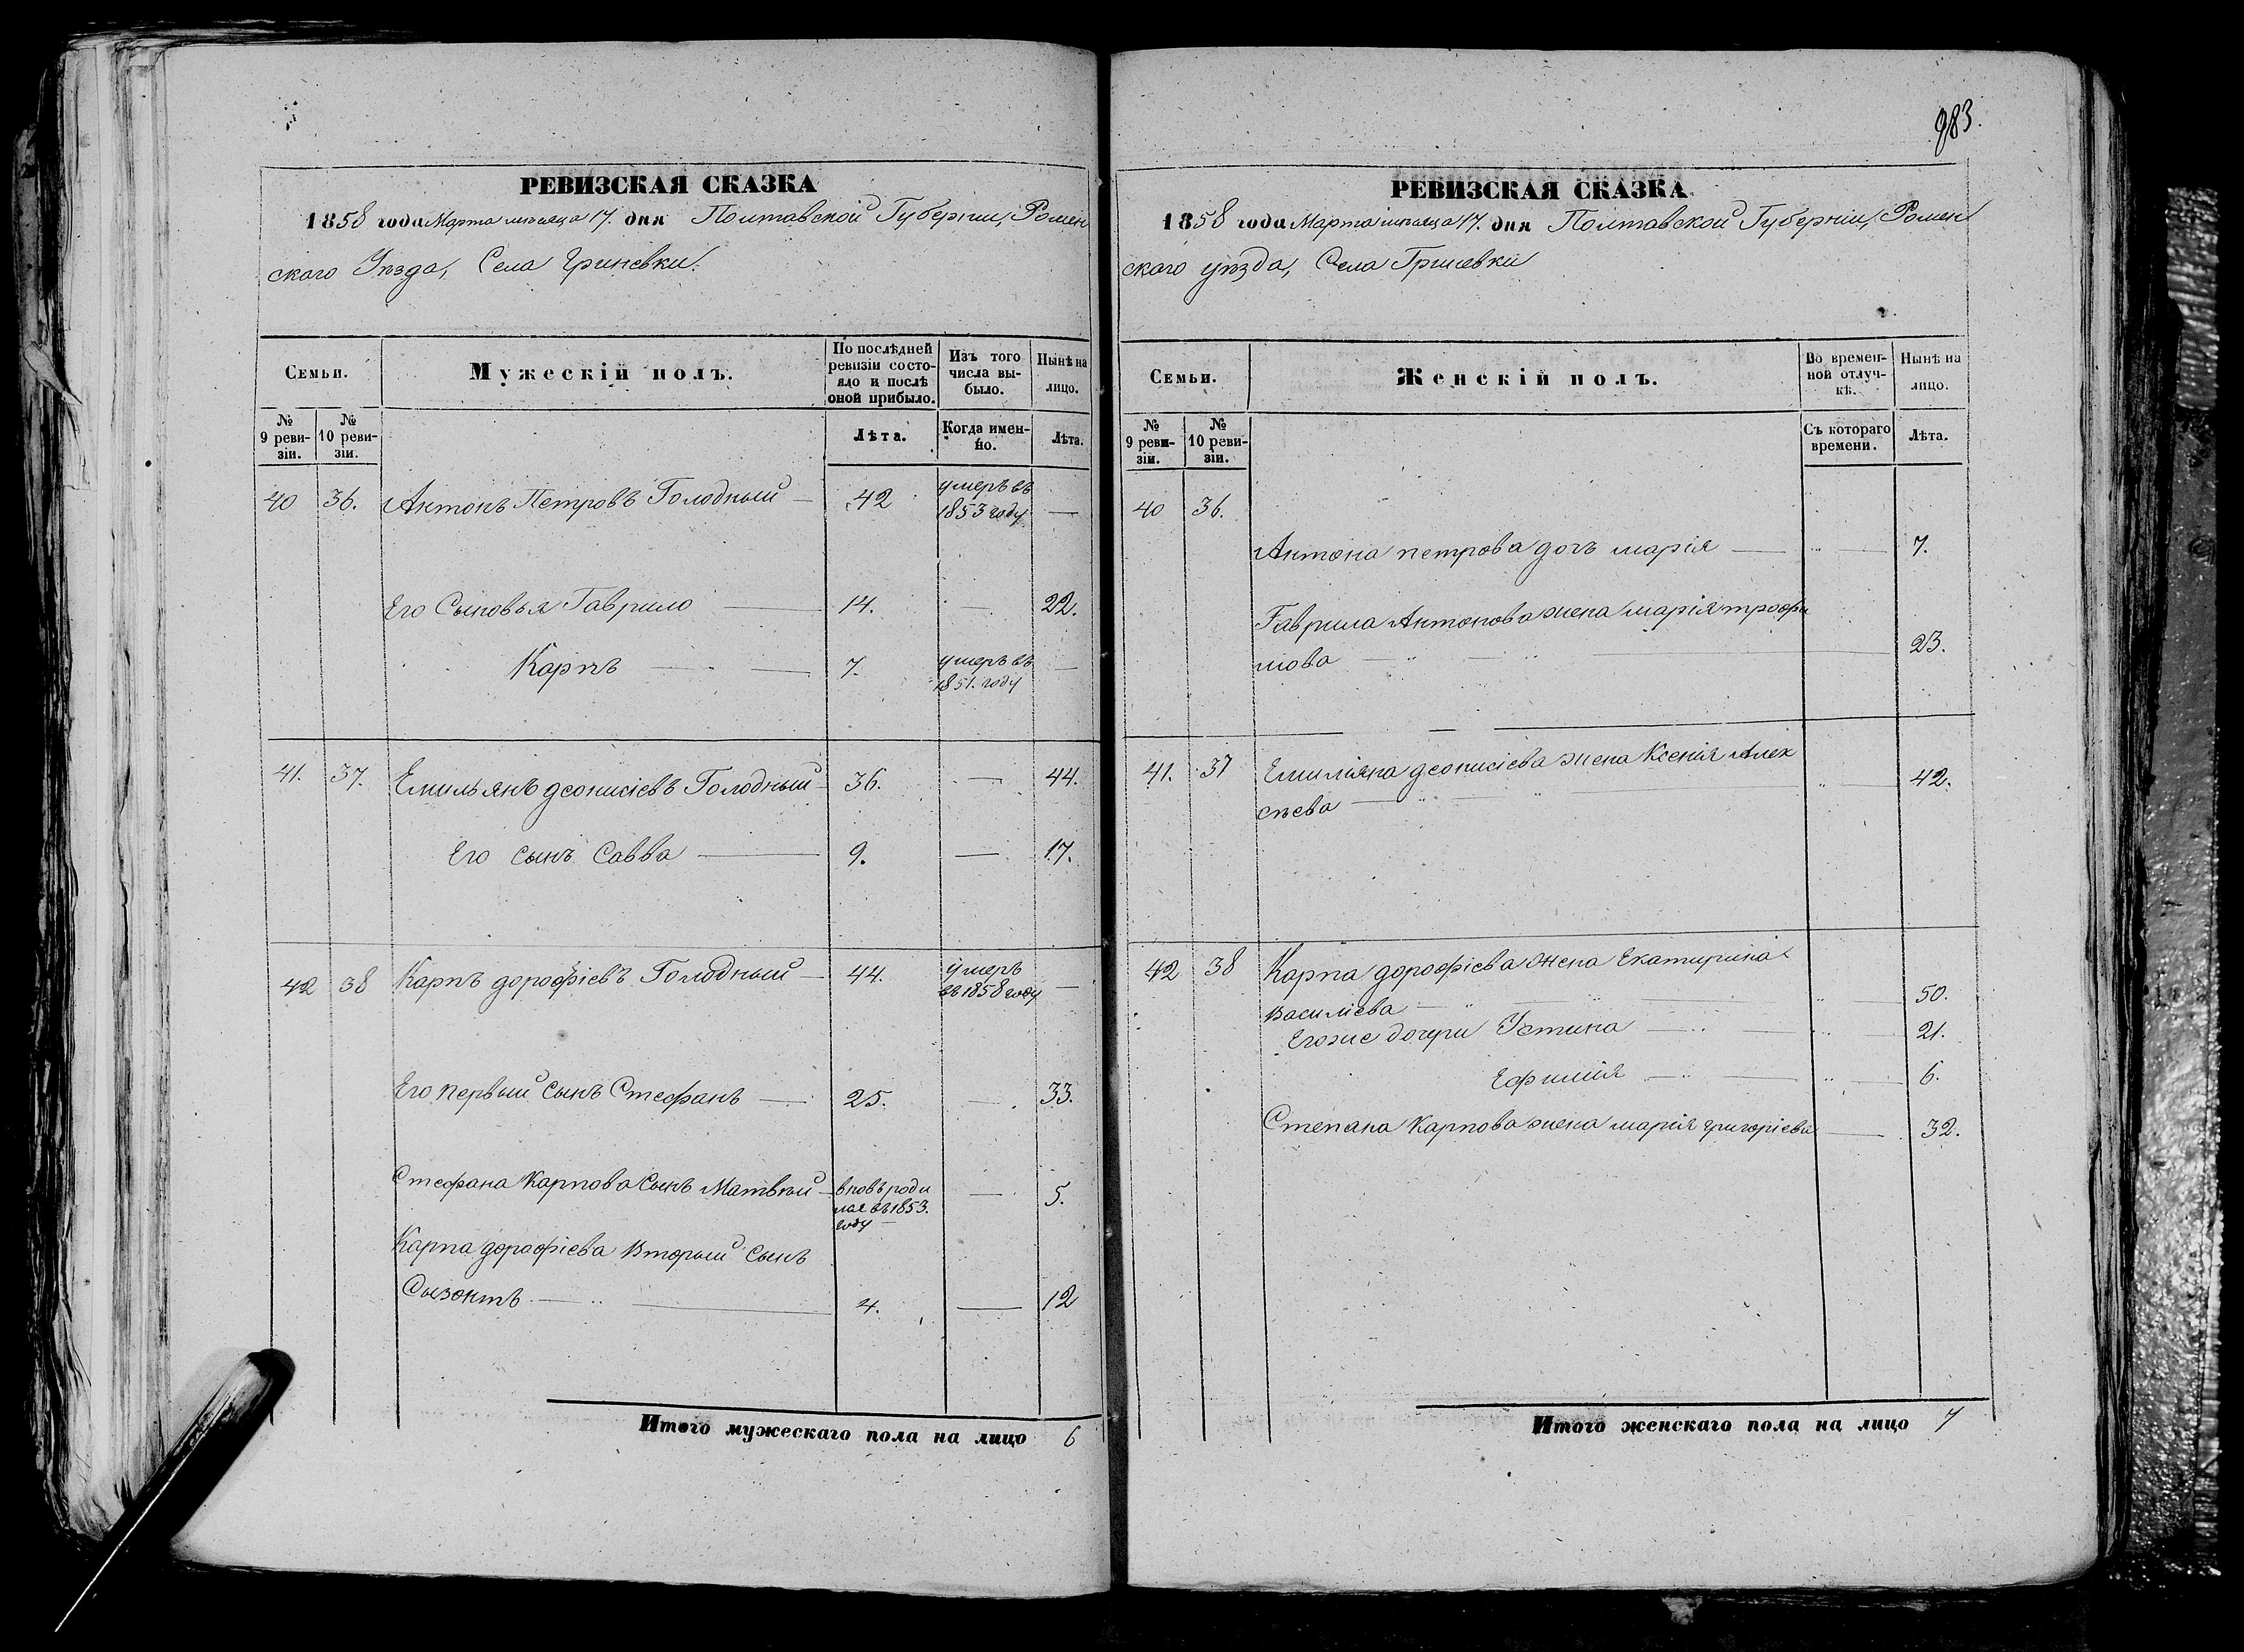 РЕВИЗСКАЯ СКАЗКА
1858 года Марта месяца 17. дня Полтавской Губернии, Ромен
ского Уѣзда, Села Гриневки.
Семьи.
Мужескій полъ.
По послѣдней ревизіи состояло и послѣ оной прибыло.
Изъ того числа выбыло.
Нынѣ на лицо.
№ 9 ревизіи.
№ 10 ревизіи.
Лѣта.
Когда именно.
Лѣта.
40 36. Антонъ Петровъ Голодный — 42 умеръ въ 1853 году —
Его Сыновья Гаврило — 14. — 22.
Карпъ — 7. умеръ въ 1851. году —
41. 37. Емильянъ деонисіевъ Голодный 36. — 44.
Его сынъ Савва — 9. — 17.
42 38 Карпъ дорофіевъ Голодный — 44. умеръ въ 1858 году —
Его первый сынъ Стефанъ — 25. — 33.
Стефана Карпова Сынъ Матвѣй — вновь роди
лся въ 1853. году — 5.
Карпа дорофіева Вторый Сынъ
Сызонтъ — 4. — 12
Итого мужескаго пола на лицо 6
983.
РЕВИЗСКАЯ СКАЗКА
1858 года Марта месяца 17. дня Полтавской Губерніи, Ромен
ского уѣзда, Села Гриневки
Семьи.
Женскій полъ.
Во временной отлучкѣ.
Нынѣ на лицо.
№ 9 ревизіи.
№ 10 ревизіи.
Съ котораго времени.
Лѣта.
40 36.
Антона петрова дочь марія — 7.
Гаврила Антонова жена марія трофи
мова — 23.
41. 37 Емиліяна деонисіева жена Ксенія Алек
сѣева — 42.
42 38 Карпа дорофіева жена Екатирина
Василіева — 50.
Егоже дочери Устина — 21.
Ефимія — 6.
Степана Карпова жена марія григоріева — 32.
Итого женскаго пола на лицо 7